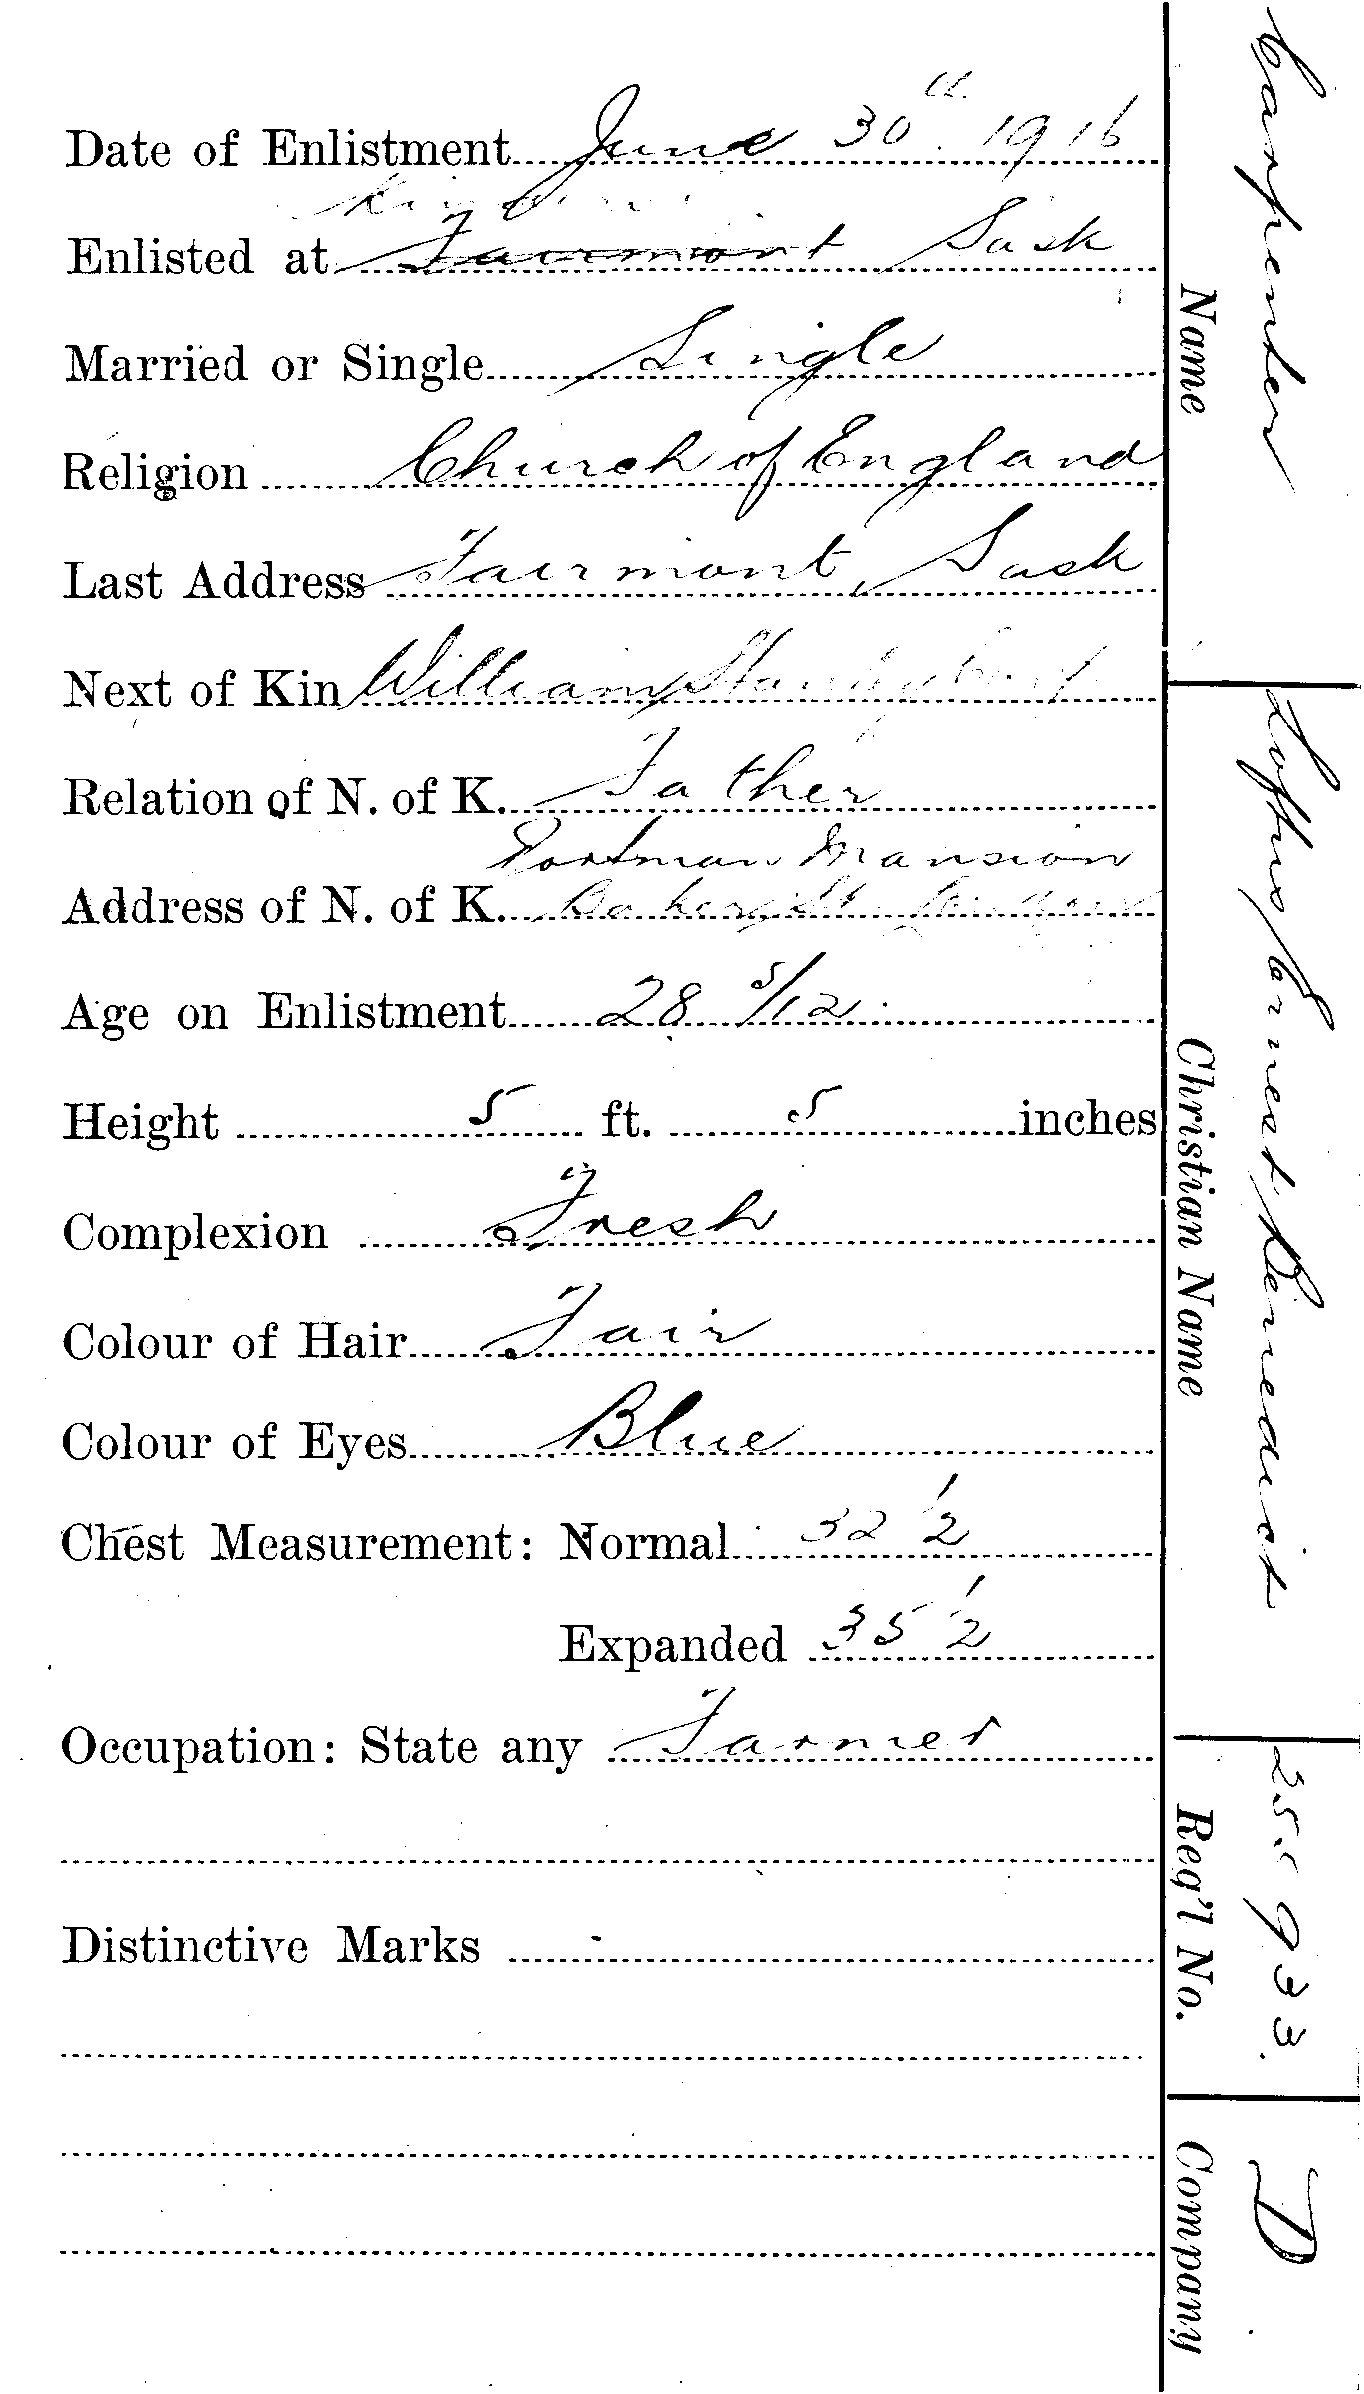 Date of Enlistment June 30th. 1916
Enlisted at Fairmont Sask
Married or Single Single
Religion Church of England
Last Address Fairmont, Sask
Next of Kin William
Relation of N. of K. Father
Portman Mansion
Address of N. of K. Baker St. London
Age on Enlistment 28 5/12
Height 5 ft. 5 inches
Complexion Fresh
Colour of Hair Fair
Colour of Eyes Blue
Chest Measurement: Normal 32 1/2
Expanded 35 1/2
Occupation: State any Farmer
Distinctive Marks
Carpenter
Name
Loftus Ernest Benedict
Christian Name
Reg'l No.
D
Company